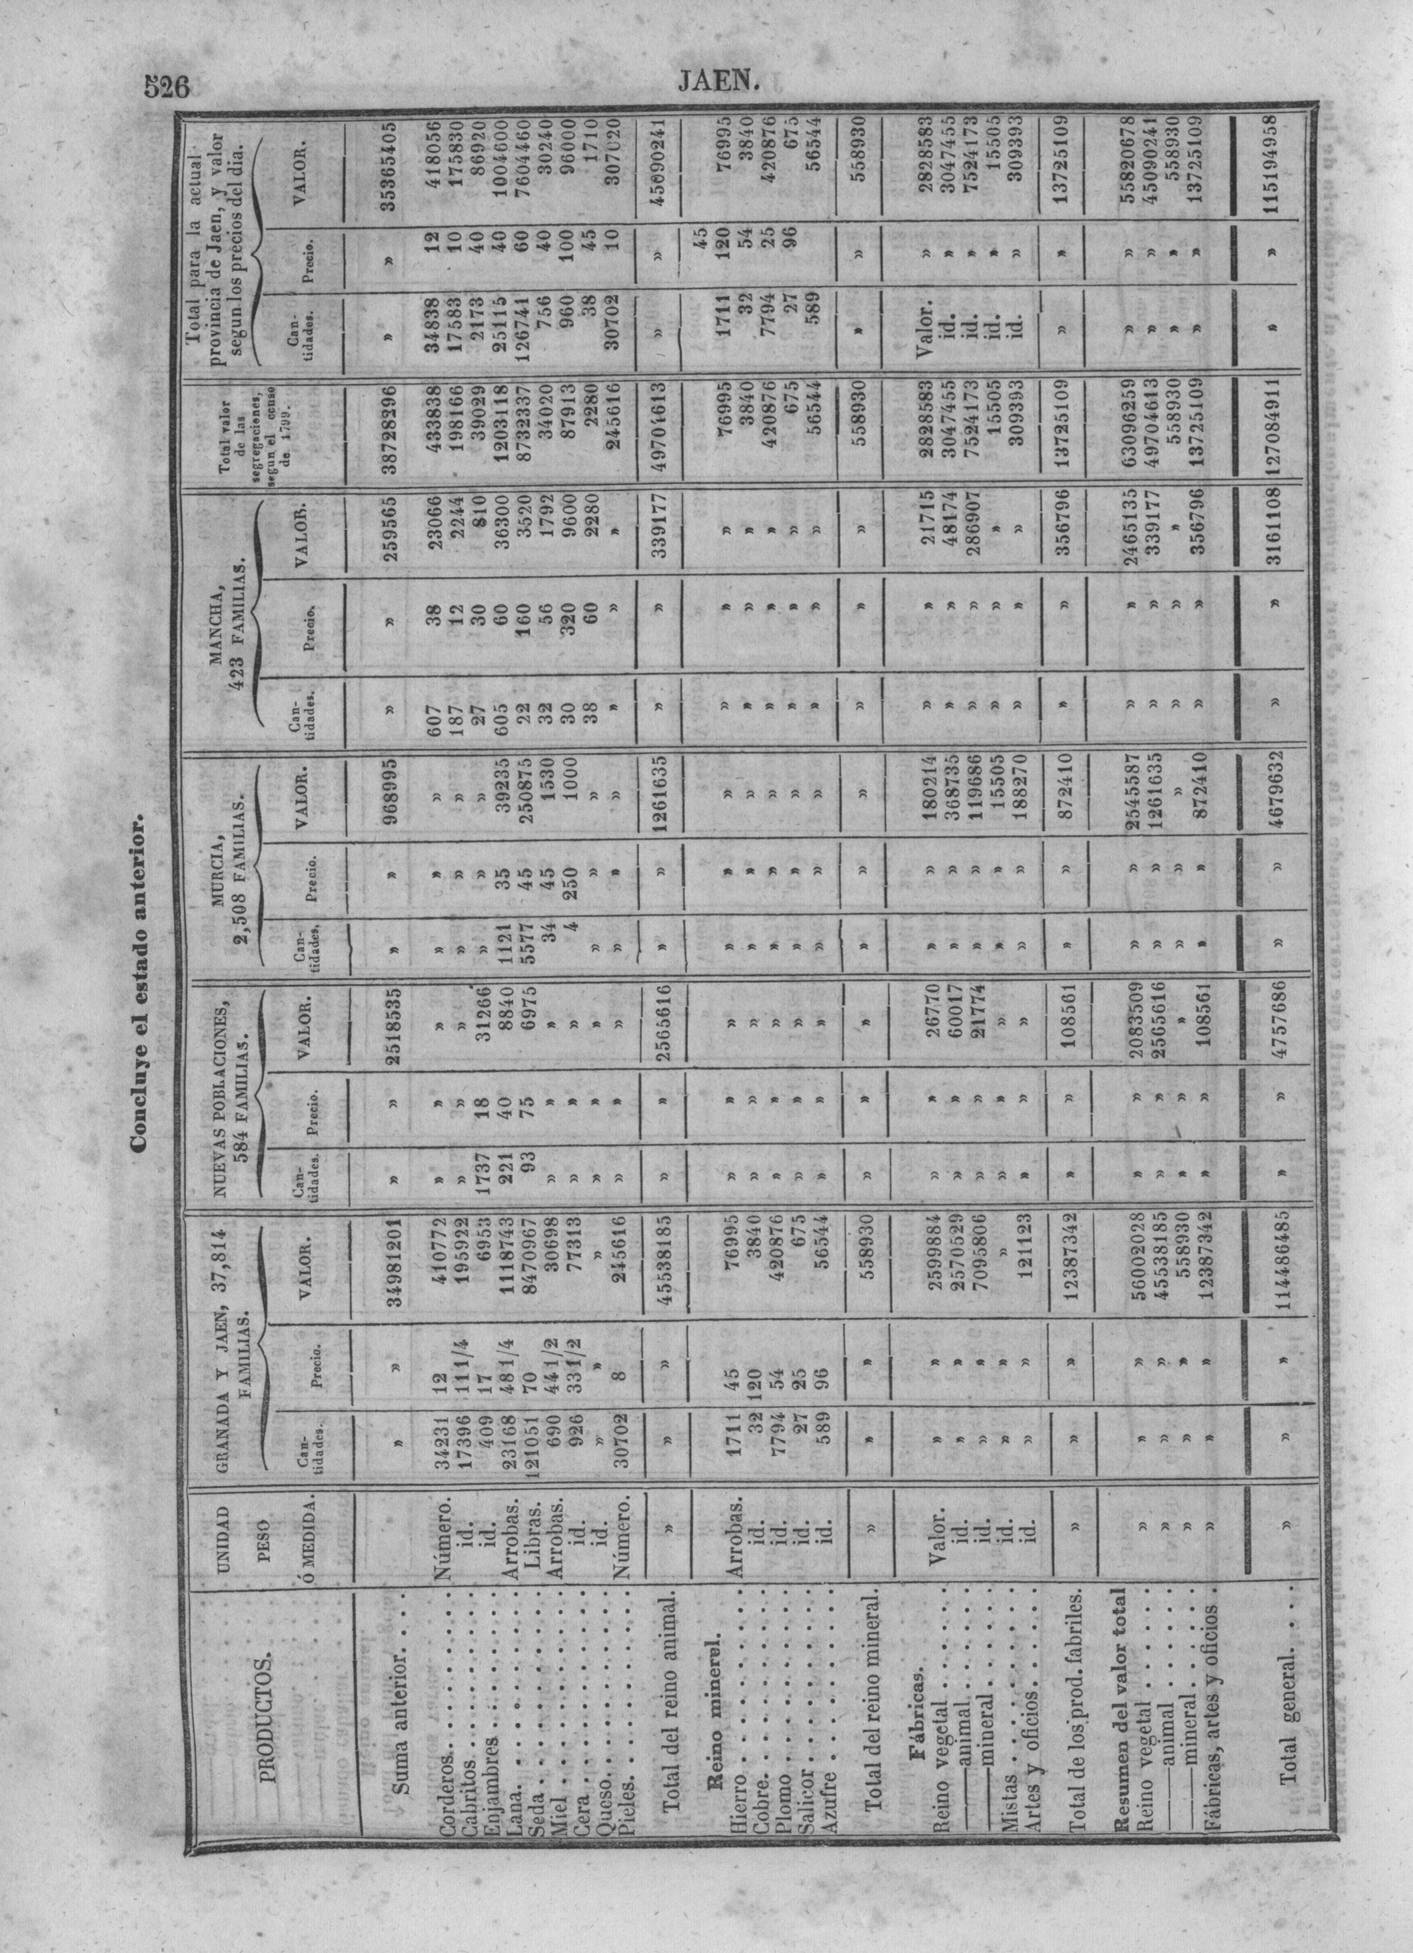 526
JAEN.
Concluye el estado anterior.
PRODUCTOS. UNIDAD PESO Ó MEDIDA. GRANADA Y JAEN, 37,814 FAMILIAS. NUEVAS POBLACIONES, 584 FAMILIAS. MURCIA, 2,508 FAMILIAS. MANCHA, 423 FAMILIAS. Total valor de las segregaciones, segun el censo de 1799. Total para la actual provincia de Jaen, y valor segun los precios del dia.
Can-tidades. Precio. VALOR. Can-tidades. Precio. VALOR. Can-tidades. Precio. VALOR. Can-tidades. Precio. VALOR. Can-tidades. Precio. VALOR.
Suma anterior. . . . » » 34981201 » » 2518535 » » 968995 » » 259565 38728296 » » 35365405
Corderos. . . . . . . . Número. 34231 12 410772 » » » » » » 607 38 23066 433838 34838 12 418056
Cabritos . . . . . . . . id. 17396 11 1/4 195922 » » » » » » 187 12 2244 198166 17583 10 175830
Enjambres . . . . . . . id. 409 17 6953 1737 18 31266 » » » 27 30 810 39029 2173 40 86920
Lana. . . . . . . . . Arrobas. 23168 48 1/4 1118743 221 40 8840 1121 35 39235 605 60 36300 1203118 25115 40 1004600
Seda . . . . . . . . . Libras. 121051 70 8470967 93 75 6975 5577 45 250875 22 160 3520 8732337 126741 60 7604460
Miel . . . . . . . . . Arrobas. 690 44 1/2 30698 » » » 34 45 1530 32 56 1792 34020 756 40 30240
Cera. . . . . . . . . id. 926 33 1/2 77313 » » » 4 250 1000 30 320 9600 87913 960 100 96000
Queso. . . . . . . . . id. » » » » » » » » » 38 60 2280 2280 38 45 1710
Pieles. . . . . . . . . Número. 30702 8 245616 » » » » » » » » » 245616 30702 10 307020
Total del reino animal. » » » 45538185 » » 2565616 » » 1261635 » » 339177 49704613 » » 45090241
Reino minerel.
Hierro . . . . . . . . Arrobas. 1711 45 76995 » » » » » » » » » 76995 1711 45 76995
Cobre. . . . . . . . . id. 32 120 3840 » » » » » » » » » 3840 32 120 3840
Plomo . . . . . . . . id. 7794 54 420876 » » » » » » » » » 420876 7794 54 420876
Salicor . . . . . . . . id. 27 25 675 » » » » » » » » » 675 27 25 675
Azufre . . . . . . . . id. 589 96 56544 » » » » » » » » » 56544 589 96 56544
Total del reino mineral. » » » 558930 » » » » » » » » » 558930 » » 558930
Fábricas.
Reino vegetal . . . . . Valor. » » 2599884 » » 26770 » » 180214 » » 21715 2828583 Valor. » 2828583
——animal. . . . . . id. » » 2570529 » » 60017 » » 368735 » » 48174 3047455 id. » 3047455
——mineral . . . . . id. » » 7095806 » » 21774 » » 119686 » » 286907 7524173 id. » 7524173
Mistas . . . . . . . . id. » » » » » » » » 15505 » » » 15505 id. » 15505
Artes y oficios . . . . . id. » » 121123 » » » » » 188270 » » » 309393 id. » 309393
Total de los prod. fabriles. » » » 12387342 » » 108561 » » 872410 » » 356796 13725109 » » 13725109
Resumen del valor total
Reino vegetal . . . . . » » » 56002028 » » 2083509 » » 2545587 » » 2465135 63096259 » » 55820678
——animal . . . . . » » » 45538185 » » 2565616 » » 1261635 » » 339177 49704613 » » 45090241
——mineral . . . . . » » » 558930 » » » » » » » » » 558930 » » 558930
Fábricas, artes y oficios . » » » 12387342 » » 108561 » » 872410 » » 356796 13725109 » » 13725109
Total general. . . . » » » 114486485 » » 4757686 » » 4679632 » » 3161108 127084911 » » 115194958